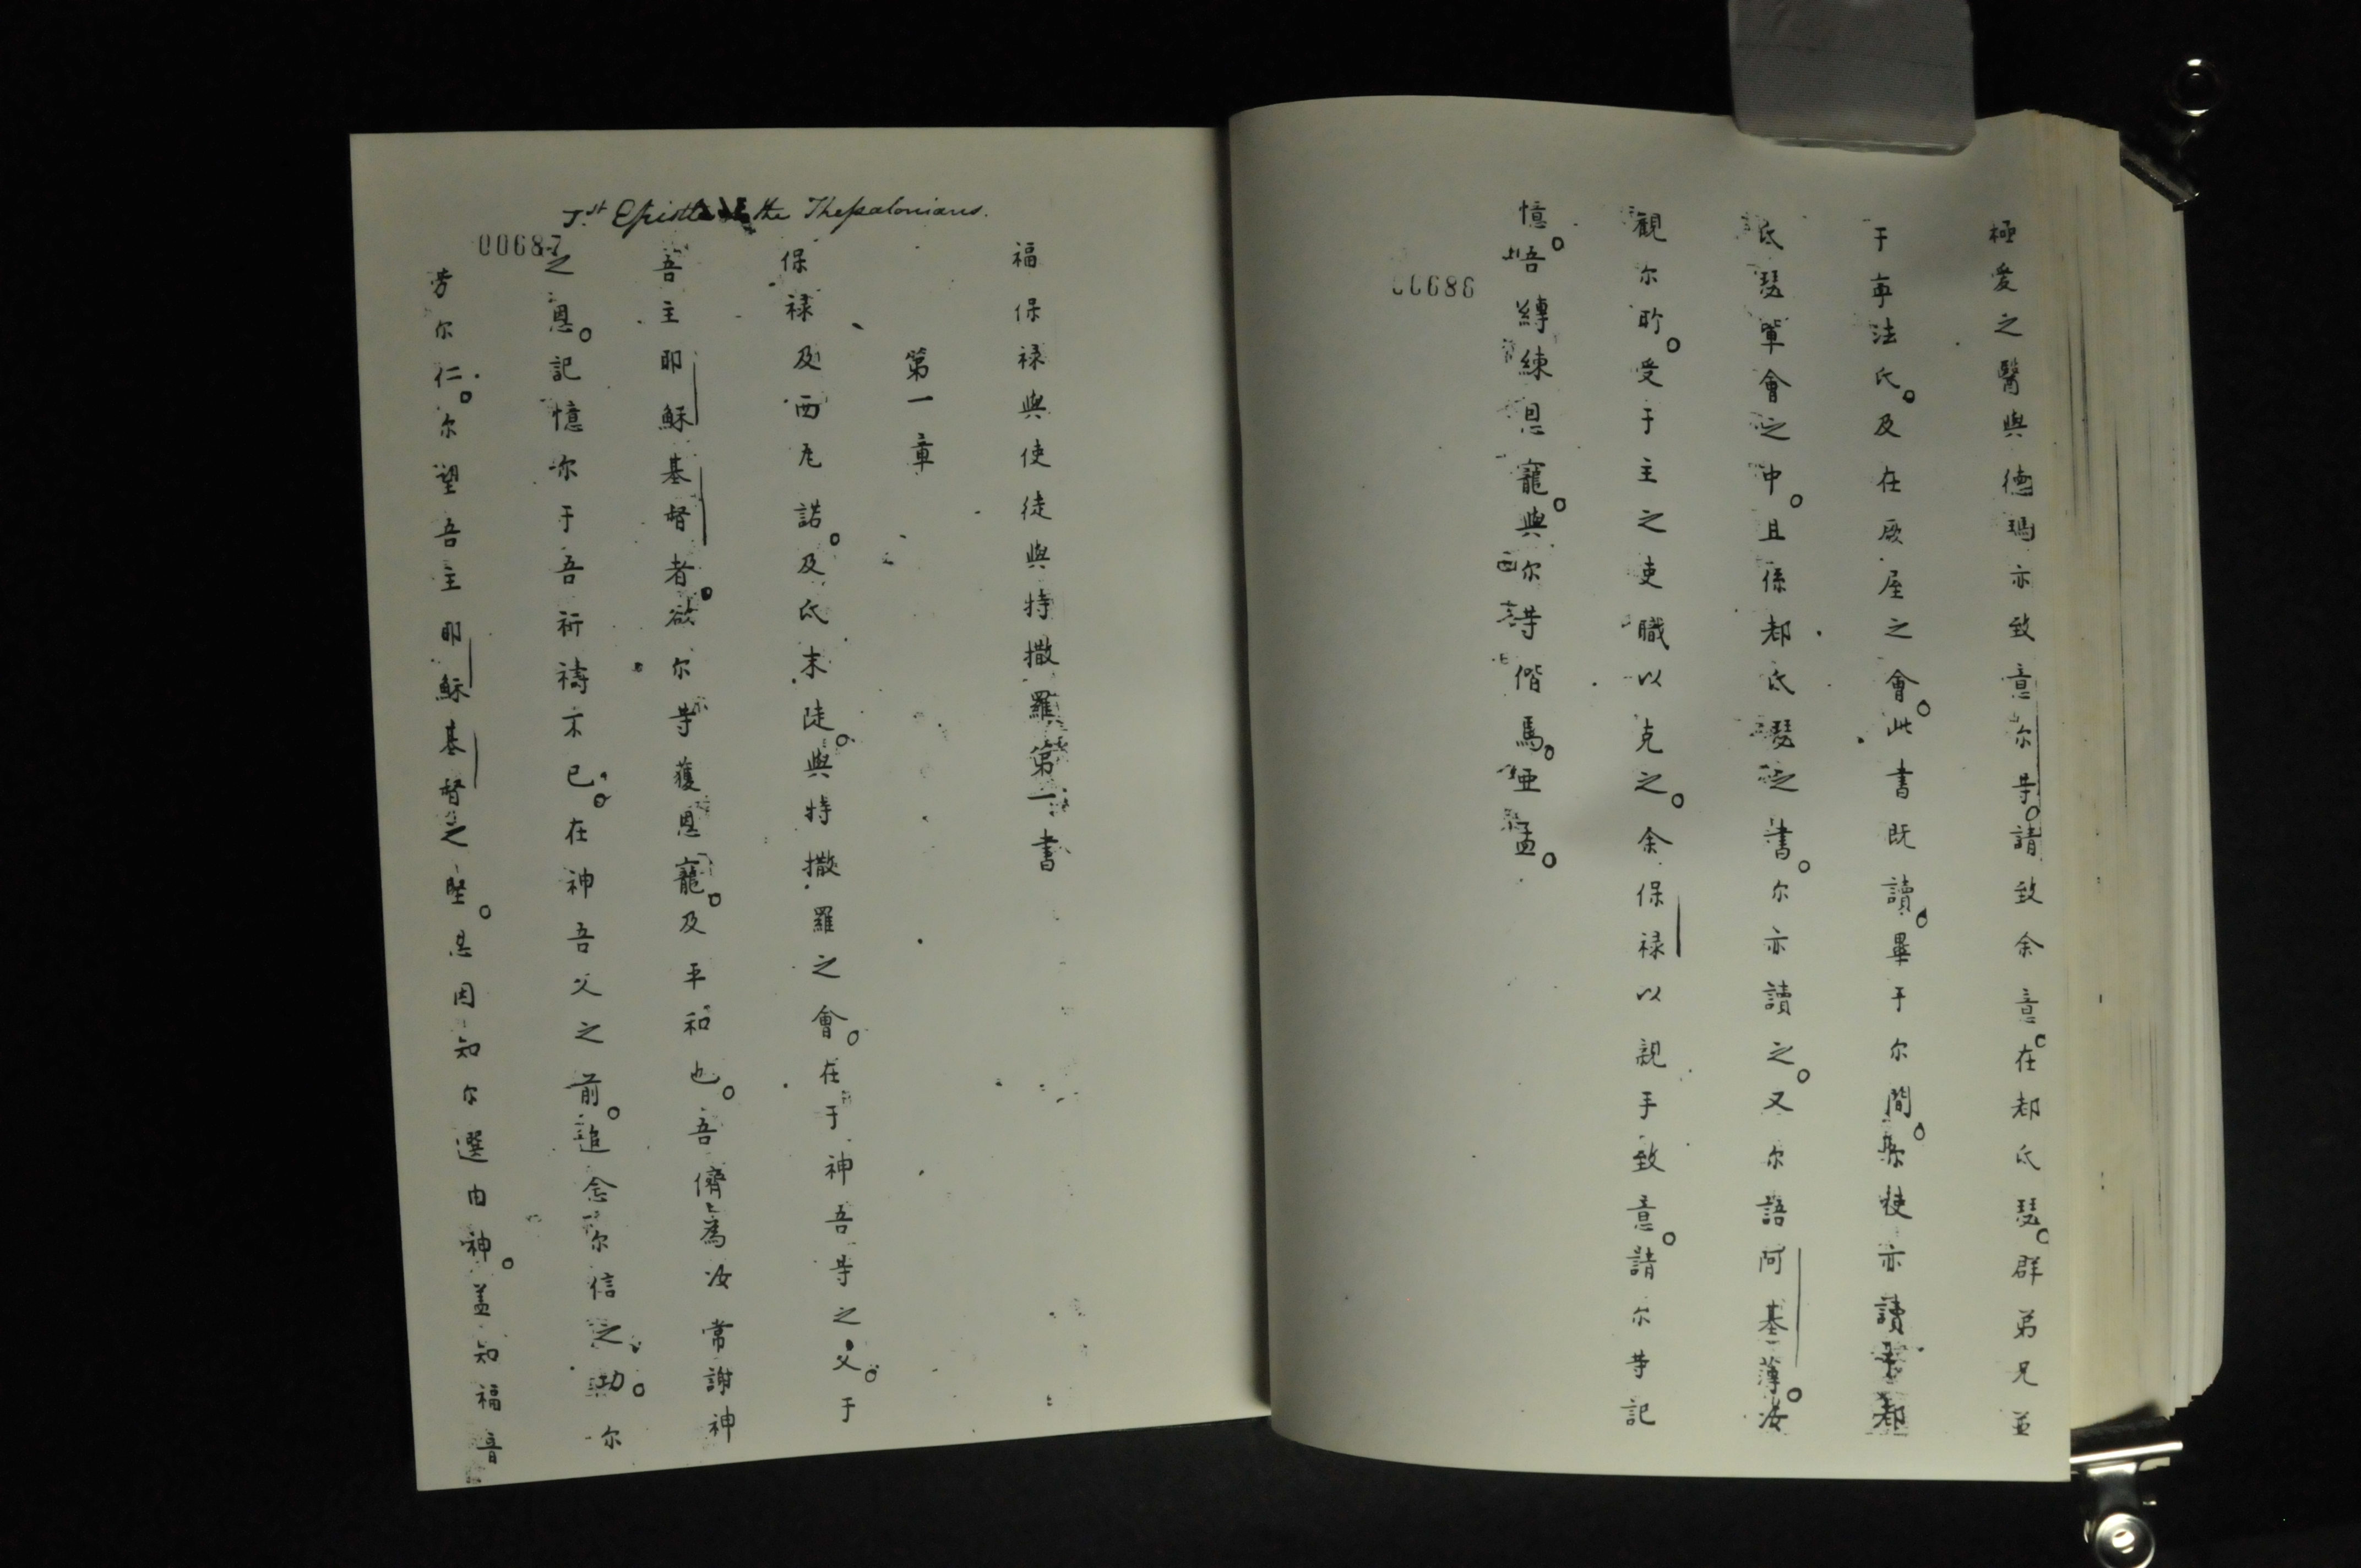 極愛之醫與德瑪亦致意尔等。請致余意。在都氏瑟。群弟兄並
于寧法氏。及在厥屋之會。此書既讀。畢于尔間。使亦讀于都
氏瑟單會之中。且係都氏瑟之書。尔亦讀之。又尔語阿基薄。汝
觀尔所。受于主之吏職以克之。余保禄以親手致意。請尔等記
憶。吾縛練恩寵。與尔等偕焉。亜孟。
00686
Ist Epistle the Thessalonians.
00687
福保禄與使徒與特撒羅第一書
第一章
保禄及西尼諾。及氐末陡。與特撒羅之會。在于神吾等之父。于
吾主耶穌基督者。欲尔等獲恩寵。及平和也。吾儕為汝常謝神
之恩。記憶尔于吾祈禱不已。在神吾父之前。追念尔信之功。尔
劳尔仁。尔望吾主耶穌基督之堅。因知尔選由神。盖知福音